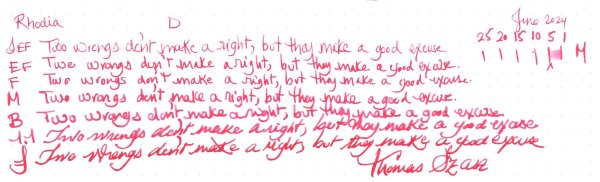 Rhodia D June 2024
25 20 15 10 5 1
1 1 1 1 M
JEF Two wrongs don't make a right, but they make a good excuse
EF Two wrongs don't make a right, but they make a good excuse.
F Two wrongs don't make a right, but they make a good excuse.
M Two wrongs don't make a right, but they make a good excuse.
B Two wrongs don't make a right, but they make a good excuse.
1.1 Two wrongs don't make a right, but they make a good excuse
Two wrongs don't make a right, but they make a good excuse
Thomas Szasz